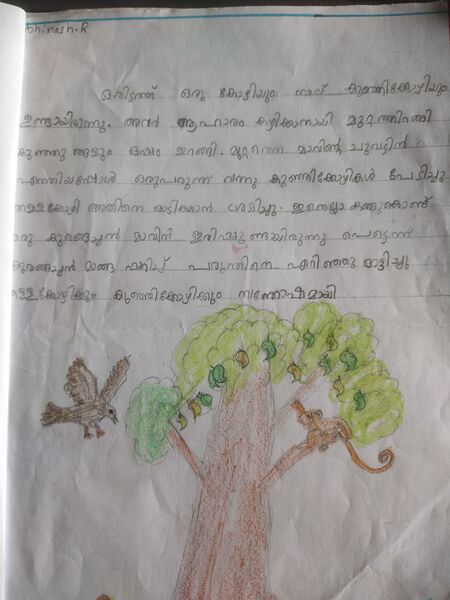 Abhinash.R
ഒരിടത്ത് ഒരു കോഴിയും നാല് കുഞ്ഞിക്കോഴിയും
ഉണ്ടായിരുന്നു. അവർ ആഹാരം കഴിക്കാനായി മുറ്റത്തിറങ്ങി
കുഞ്ഞുങ്ങളും ഒപ്പം ഇറങ്ങി. മുറ്റത്തെ മാവിന്റെ ചുവട്ടിൽ
എത്തിയപ്പോൾ ഒരുപരുന്ത് വന്നു കുഞ്ഞിക്കോഴികൾ പേടിച്ചു
തള്ളക്കോഴി അതിനെ ഓടിക്കാൻ ശ്രമിച്ചു. ഇതെല്ലാ കണ്ടുകൊണ്ട്
ഒരു കുരങ്ങച്ചൻ മാവിൻ ഇരിപ്പുണ്ടായിരുന്നു പെട്ടെന്ന്
കുരങ്ങച്ചൻ മാങ്ങ പറിച്ച് പരുന്തിനെ എറിഞ്ഞു ഓട്ടിച്ചു
തള്ളകോഴിക്കും കുഞ്ഞിക്കോഴിക്കും സന്തോഷമായി